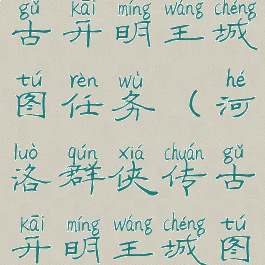 gǔ kāi míng wáng chéng
古开明王城
tú rèn wù hé
图任务（河
luò qún xiá chuán gǔ
洛群侠传古
kāi míng wáng chéng tú
开明王城图